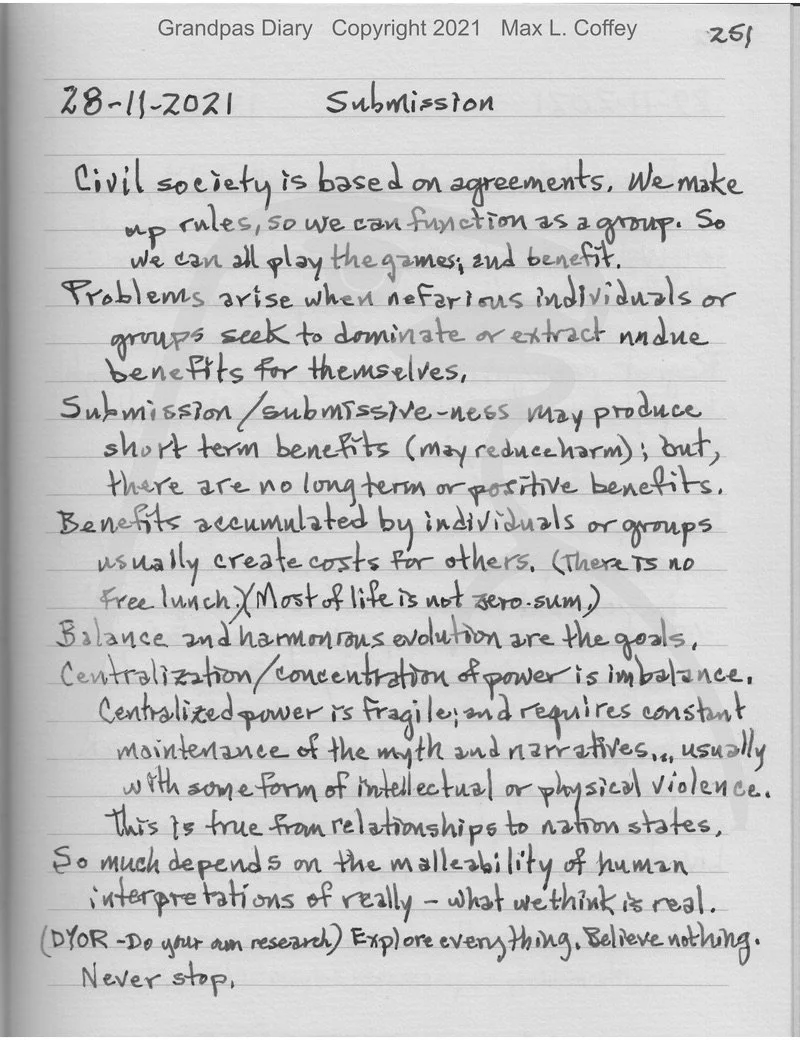 Grandpas Diary Copyright 2021 Max L. Coffey
251
28-11-2021 Submission
Civil society is based on agreements. We make
up rules, so we can function as a group. So
we can all play the games; and benefit.
Problems arise when nefarious individuals or
groups seek to dominate or extract undue
benefits for themselves,
Submission/submissive-ness may produce
short term benefits (may reduce harm); but,
there are no long term or positive benefits.
Benefits accumulated by individuals or groups
usually create costs for others. (There is no
free lunch.)(Most of life is not zero-sum.)
Balance and harmonious evolution are the goals.
Centralization/concentration of power is imbalance.
Centralized power is fragile; and requires constant
maintenance of the myth and narratives... usually
with some form of intellectual or physical violence.
This is true from relationships to nation states.
So much depends on the malleability of human
interpretations of really - what we think is real.
(DYOR - Do your own research) Explore everything. Believe nothing.
Never stop.